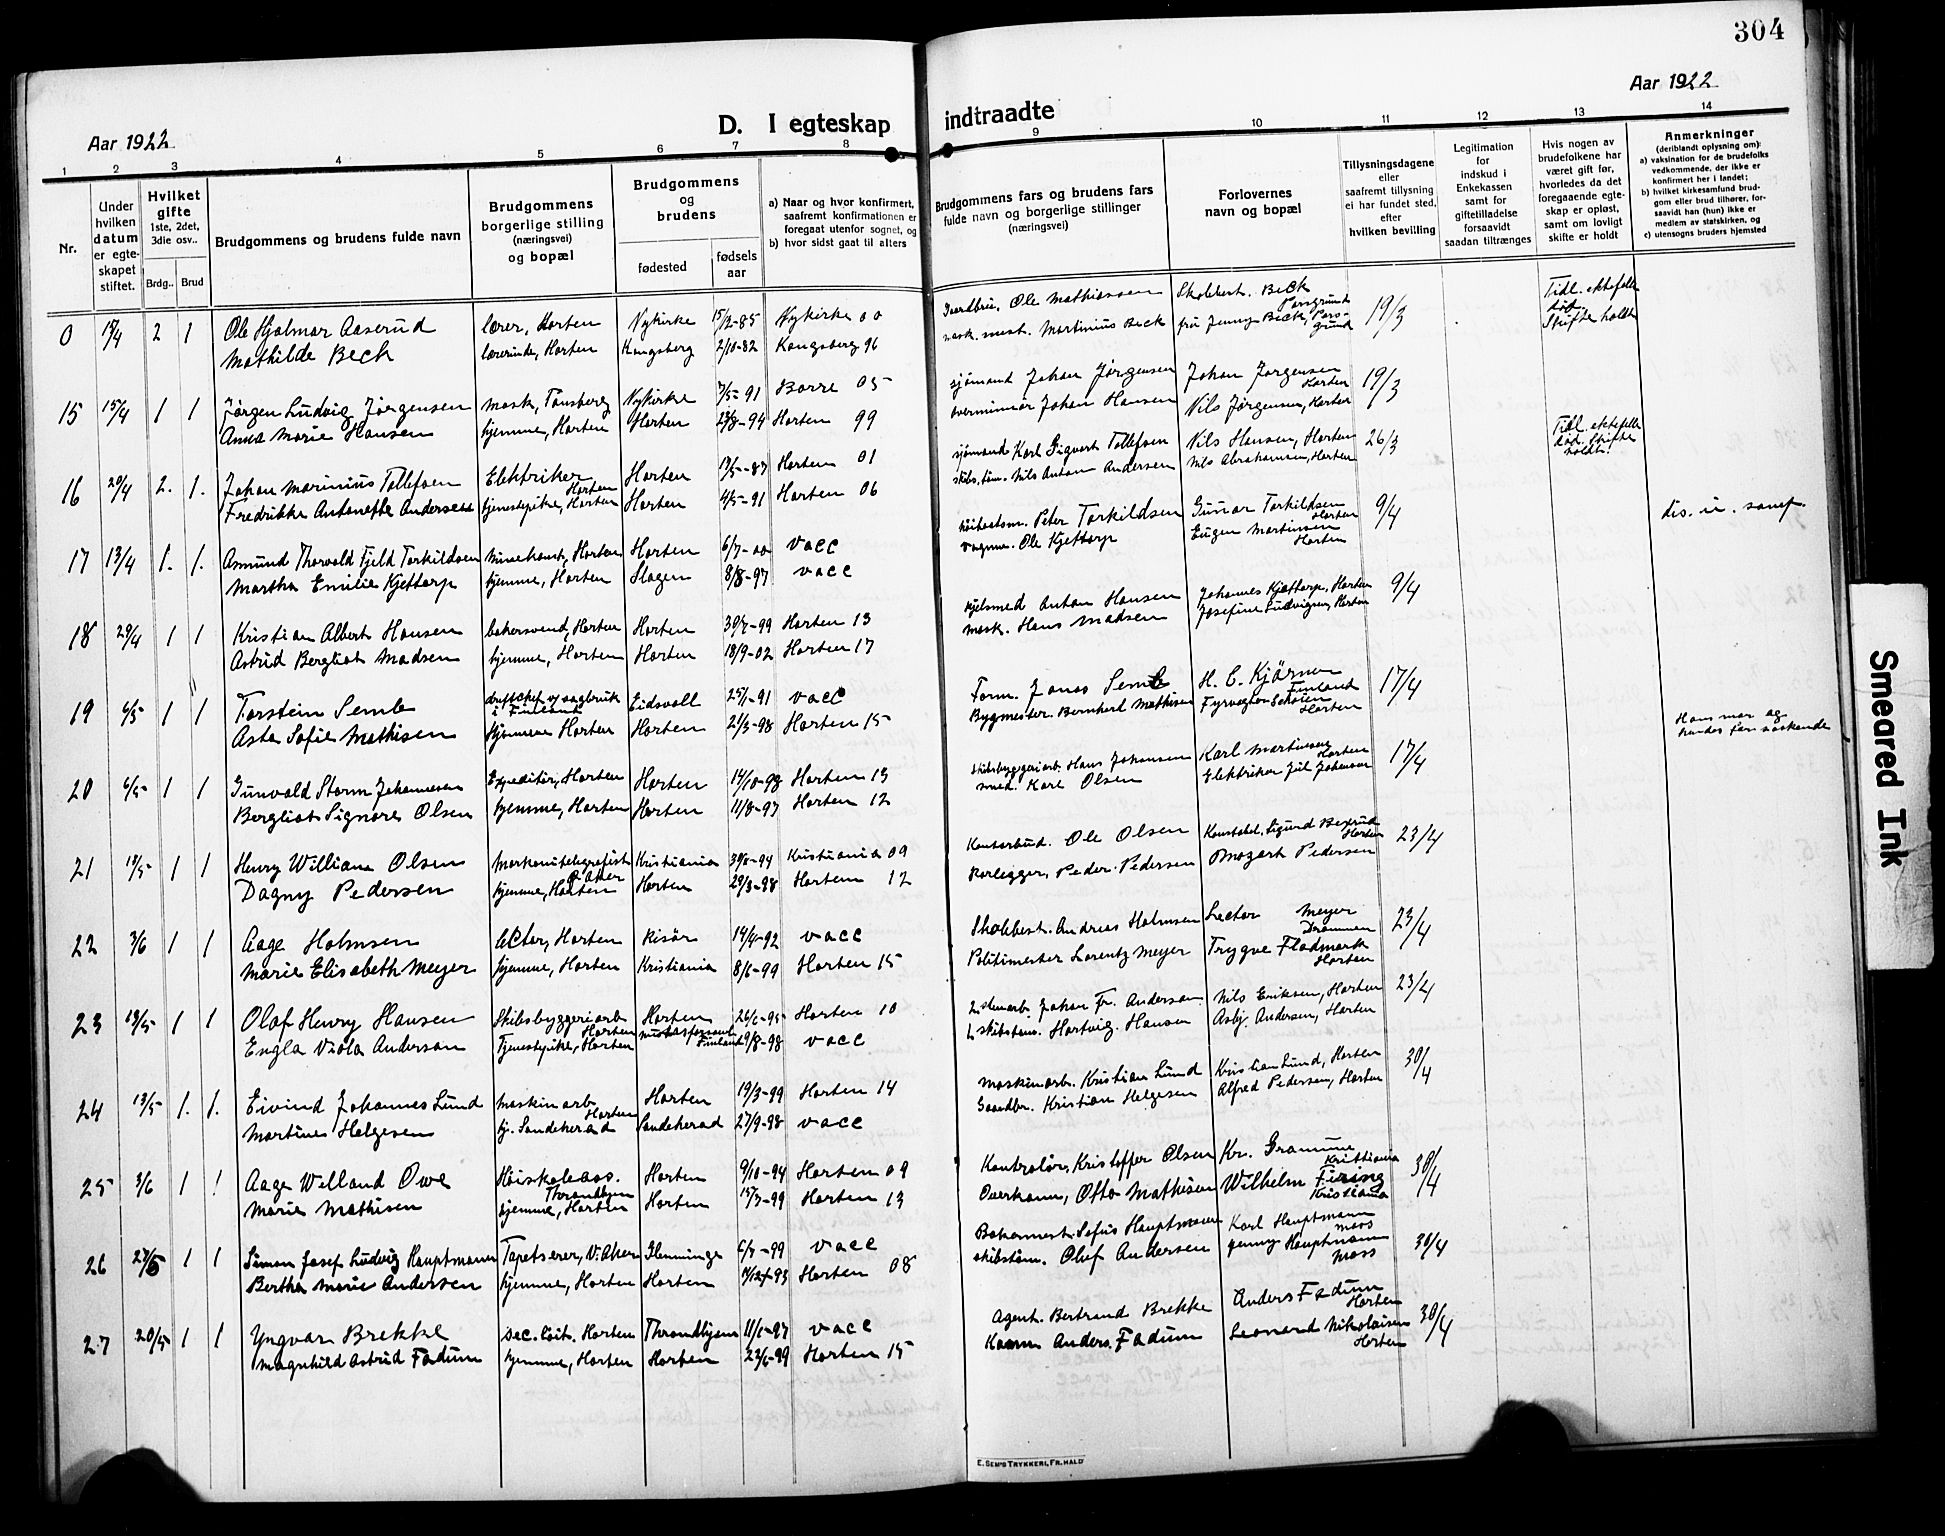 304
Aar 1922
D. I egteskap indtraadte
Aar 1922
1 2 3 4 5 6 7 8 9 10 11 12 13 14
Nr.
Under hvilken datum er egteskapet stiftet.
Hvilket gifte 1ste, 2det, 3die osv..
Brdg.. Brud
Brudgommens og brudens fulde navn
Brudgommens borgerlige stilling (næringsvei) og bopæl
Brudgommens og brudens
fødested
fødselsaar
a) Naar og hvor konfirmert, saafremt konfirmationen er foregaat utenfor sognet, og
b) hvor sidst gaat til alters
Brudgommens fars og brudens fars fulde navn og borgerlige stillinger (næringsvei)
Forlovernes navn og bopæl
Tillysningsdagene eller saafremt tillysning ei har fundet sted, efter hvilken bevilling
Legitimation for indskud i Enkekassen samt for giftetilladelse forsaavidt saadan tiltrænges
Hvis nogen av brudefolkene har været gift før, hvorledes da det foregaaende egteskap er opløst, samt om lovligt skifte er holdt
Anmerkninger
(deriblandt oplysning om):
a) vaksination for de brudefolks vedkommende, der ikke er konfirmert her i landet;
b) hvilket kirkesamfund brudgom eller brud tilhører, forsaavidt han (hun) ikke er medlem av statskirken, og
c) utensogns bruders hjemsted
0 2 1 Ole Hjalmar Aaserud lærer, Horten Nykirke 15/12-85 Nykirke 00 Ole Mathiassen Skolebest. Beck Porsgrund 19/3 Tidl. ektefelle død Skifte holdt
Mathilde Beck lærerinde, Horten Kongsberg 2/10-82 Kongsberg 96 Martinius Beck fru Jenny Beck, Porsgrund
15 15/4 1 1 Jørgen Ludvig Jørgensen mask, Tønsberg Nykirke 7/5-91 Borre 05 sjømand Johan Jørgensen Johan Jørgensen Horten 19/3
Anna Marie Hansen hjemme, Horten Horten 23/8-94 Horten 99 overminør Johan Hansen Nils Jørgensen, Horten
16 20/4 2. 1. Johan Marinius Tollefsen Elektriker Horten Horten 87 Horten 01 sjømand Karl Sigvart Tollefsen Nils Hansen, Horten 26/3 Tidl. ektefelle død. Skifte holdt.
Fredrikke Antonette Andersen tjenestepike, Horten Horten 4/5-91 Horten 06 skibs.tøm. Nils Anton Andersen Nils Abrahamsen, Horten
17 13/4 1. 1. Asmund Thorvald Fjeld Torkildsen minekont, Horten Horten 6/7-00 vacc Peter Torkildsen Gunnar Torkildsen Horten 9/4 dis. u. samf.
Martha Emilie Kjettorp hjemme, Horten Slagen 8/8-97 vacc Ole Kjettorp Eugen Martinsen Horten
18 29/4 1 1 Kristian Albert Hansen bakersvend, Horten Horten 30/7-99 Horten 13 kjelsmed Anton Hansen Johannes Kjettorp, Horten 9/4
Astrid Bergliot Madsen hjemme, Horten Horten 18/9-02 Horten 17 mask. Hans Madsen Josefine Ludvigsen, Horten
19 6/5 1 1 Torstein Semb driftschef v/ sagbruk i Finland Eidsvoll 25/1-91 vacc Form. Jonas Semb H. E. Kjärner Finland 17/4
Asta Sofie Mathisen hjemme Horten Horten 21/3-98 Horten 15 Bygmester Bernhard Mathisen Fyrvogter Schøien Horten
20 6/5 1 1 Gunvald Storm Johannesen Expeditør, Horten Horten 14/10-98 Horten 13 Skibsbyggeriarb. Hans Johansen Karl Martinsen Horten 17/4 Hans mor og hendes far søskende
Bergliot Signora Olsen hjemme, Horten Horten 11/8-97 Horten 12 smed. Karl Olsen Elektriker Jul Johansen
21 18/5 1 1 Henry William Olsen Markonitelegrafist Ø Aker Kristiania 30/6-94 Kristiania 09 Kontorbud. Ole Olsen Konstabel. Sigurd Bexrud Horten 23/4
Dagny Pedersen hjemme, Horten Horten 29/3-98 Horten 12 Rørlegger, Peder Pedersen Mozart Pedersen
22 3/6 1 1 Aage Holmsen lektor, Horten Risør 14/4-92 vacc Skolebest. Andreas Holmsen Lector Meyer Drammen 23/4
Marie Elisabeth Meyer hjemme, Horten Kristiania 8/6-99 Horten 15 Politimester Lorentz Meyer Trygve Flodmark Horten
23 13/5 1 1 Olaf Henry Hansen Skibsbyggeriarb Horten Horten 26/6-95 Horten 10 2. stenarb. Johan Fr. Anderson Nils Eriksen, Horten 23/4
Engla Viola Anderson Tjenestepike, Horten Finland 9/8-98 vacc 1. skibstøm. Hartvig. Hansen Asbj. Andersen, Horten
24 13/5 1. 1. Eivind Johannes Lund Maskinarb Horten Horten 19/3-99 Horten 14 Maskinarb. Kristian Lund Kristian Lund, Horten 30/4
Martine Helgesen hj. Sandeherad Sandeherad 27/9-98 vacc Gaardbr. Kristian Helgesen Alfred Pedersen, Horten
25 3/6 1 1 Aage Welland Owe Høiskoleass. Throndhjem Horten 9/10-94 Horten 09 Kontrolør, Kristoffer Olsen Kr. Gramme Kristiania 30/4
Marie Mathisen hjemme, Horten Horten 15/7-99 Horten 13 Overkann, Otto Mathisen Wilhelm Firing Kristiania
26 27/5 1 1 Simon Josef Ludvig Hauptmann Tapetserer, V. Aker Flemminge 99 vacc Bakermest. Sofus Hauptmann Karl Hauptmann Moss 30/4
Bertha Marie Andersen hjemme, Horten Horten 11/12-93 Horten 08 skibstøm. Oluf Andersen Jenny Hauptmann Moss
27 20/5 1 1 Yngvar Brekke sec. løit. Horten Throndhjem 11/1-97 vacc Agent. Bertrand Brekke Anders Fadum Horten 30/4
Magnhild Astrid Fadum hjemme, Horten Horten 23/6-99 Horten 15 Kaam Anders Fadum Leonard Nikolaisen Horten
E. SEM'S TRYKKERI, FR.HALD
Smeared Ink